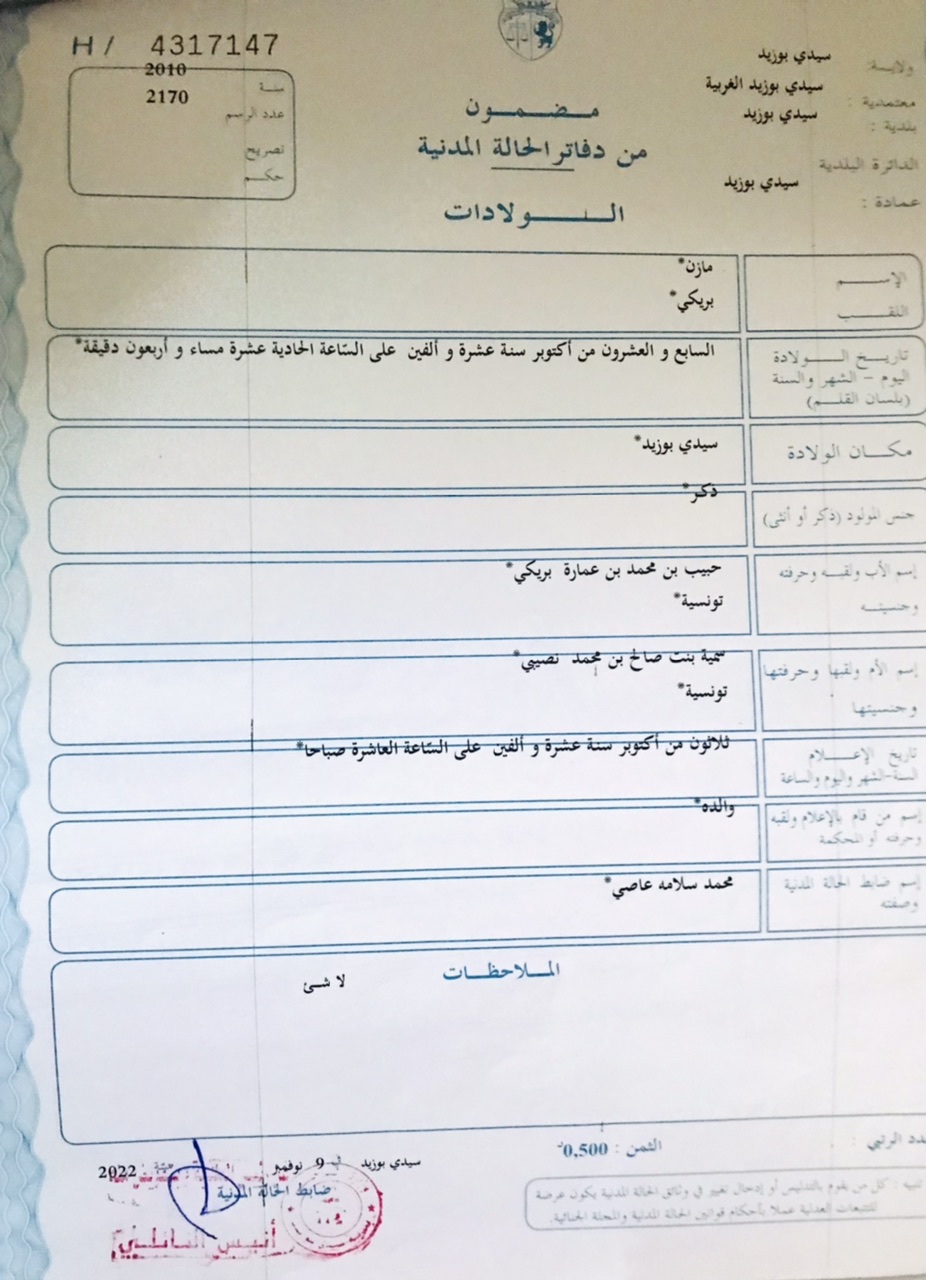 H / 4317147
سنة 2010
عدد الرسم 2170
تصريح
حكم
مضمون
من دفاتر الحالة المدنية
الولادات
ولاية: سيدي بوزيد
معتمدية : سيدي بوزيد الغربية
بلدية : سيدي بوزيد
الدائرة البلدية
عمادة : سيدي بوزيد
الإسم مازن*
اللقب بريكي*
تاريخ الولادة السابع و العشرون من أكتوبر سنة عشرة و ألفين على السّاعة الحادية عشرة مساء و أربعون دقيقة*
اليوم - الشهر والسنة
(بلسان القلم)
مكان الولادة سيدي بوزيد*
جنس المولود (ذكر أو أنثى) ذكر*
إسم الأب ولقبه وحرفته حبيب بن محمد بن عمارة بريكي*
وجنسيته تونسية*
إسم الأم ولقبها وحرفتها سمية بنت صالح بن محمد نصيبي*
وجنسيتها تونسية*
تاريخ الإعلام ثلاثون من أكتوبر سنة عشرة و ألفين على السّاعة العاشرة صباحا*
السنة-الشهر واليوم والساعة
إسم من قام بالإعلام ولقبه والده*
وحرفته أو المحكمة
إسم ضابط الحالة المدنية محمد سلامه عاصي*
وصفته
الملاحظات
لا شئ
عدد الرتبي :
الثمن : 0,500د
سيدي بوزيد في 9 نوفمبر 2022
ضابط الحالة المدنية
أنيس
تنبيه : كل من يقوم بالتدليس أو إدخال تغيير في وثائق الحالة المدنية يكون عرضة
للتتبعات العدلية عملا بأحكام قوانين الحالة المدنية والمجلة الجنائية.